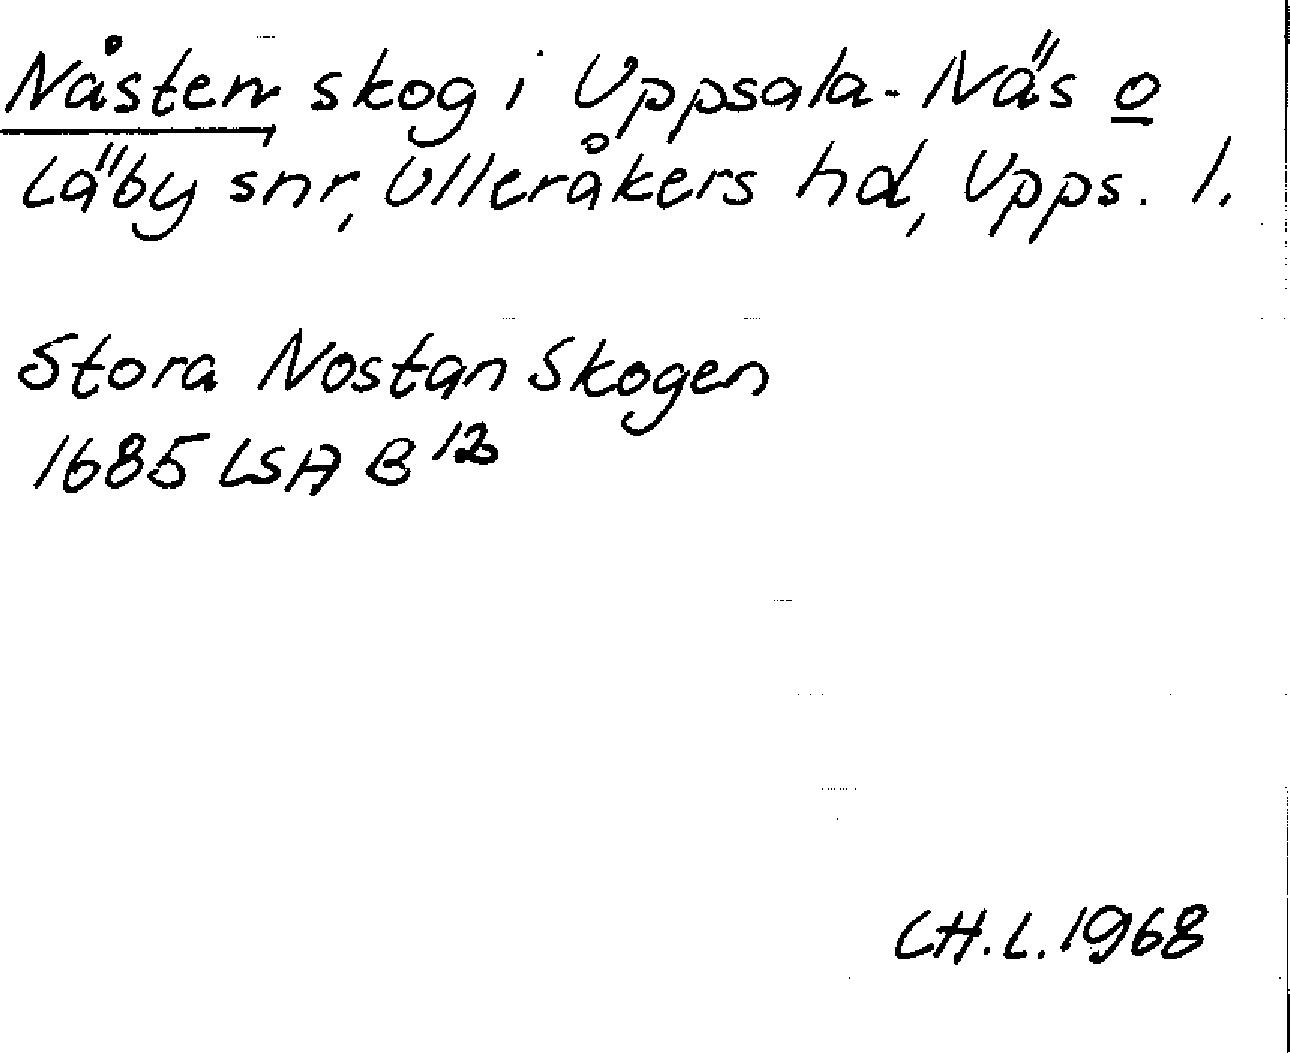 Nåsten, skog i Uppsala-Näs o
Läby snr, Ulleråkers hd, Upps. l.
Stora Nostan Skogen
1685 LSA B 12
CH.L. 1968